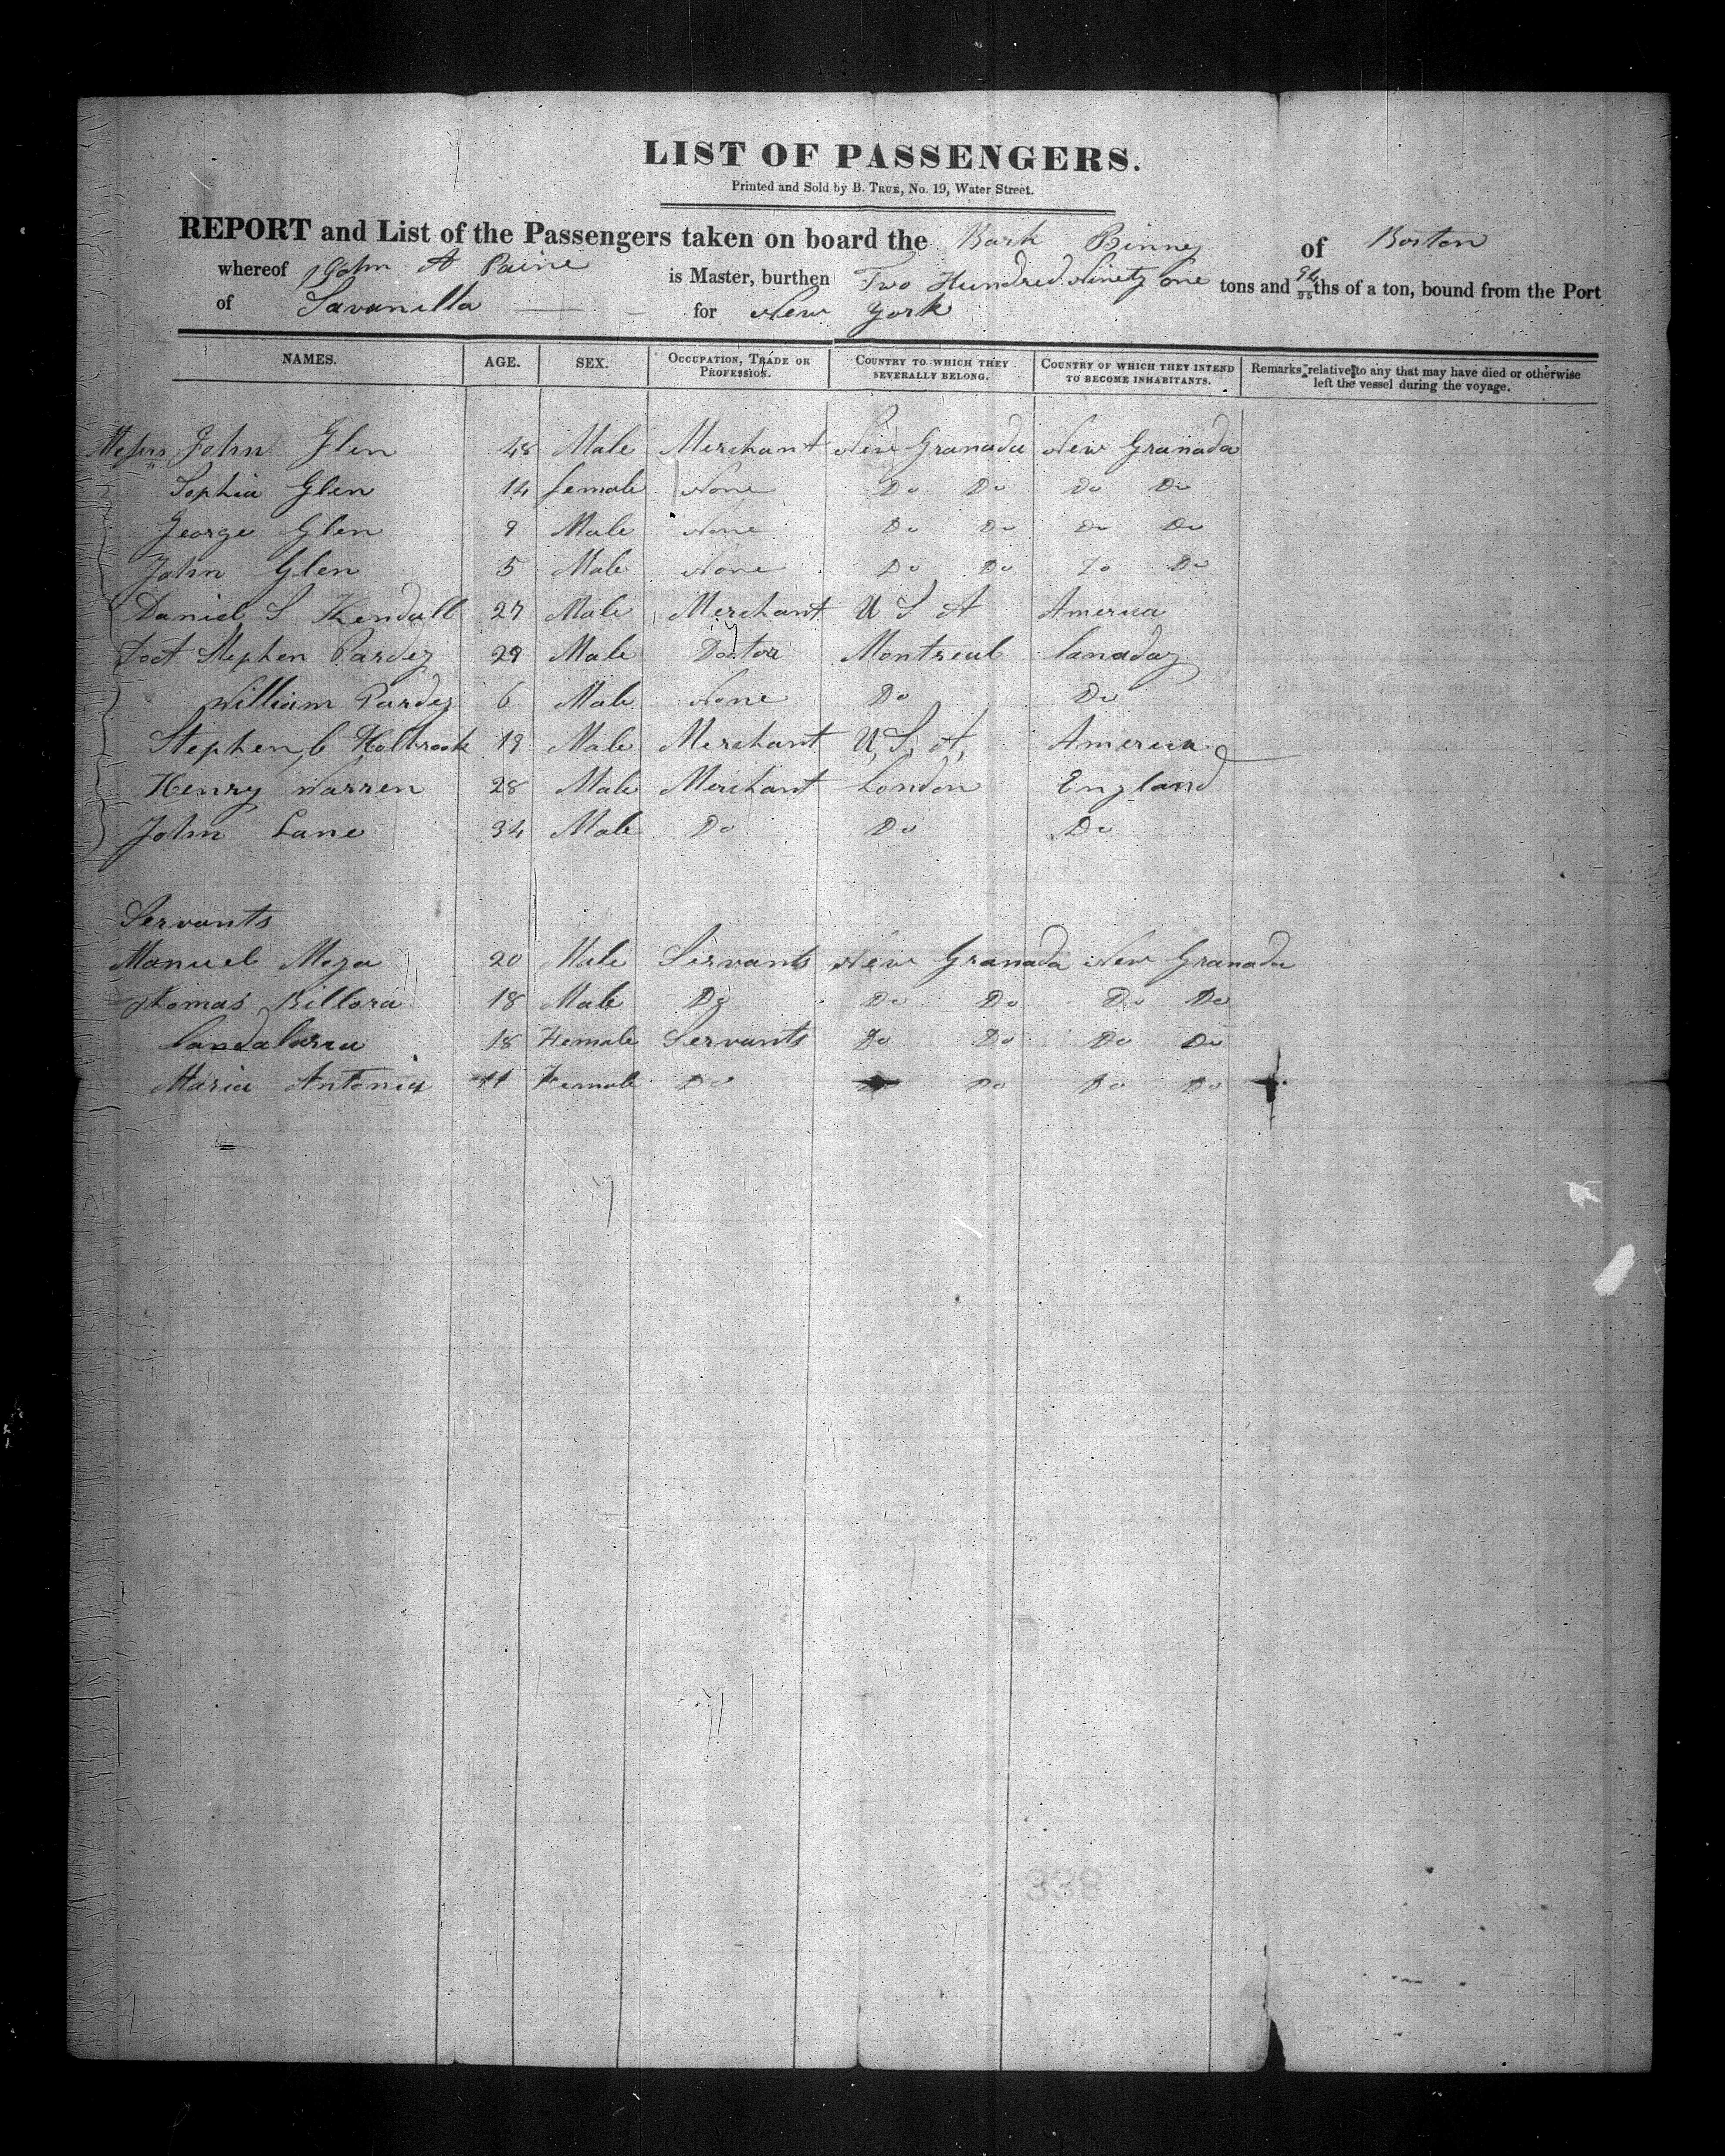 LIST OF PASSENGERS.
Printed and Sold by B. TRUE, No. 19, Water Street.
REPORT and List of the Passengers taken on board the Bark Binney of Boston
whereof John A Paine is Master, burthen Two Hundred Ninety one tons and 94/95ths of a ton, bound from the Port
of Savanilla for New York
NAMES. AGE. SEX. OCCUPATION, TRADE OR PROFESSION. COUNTRY TO WHICH THEY SEVERALLY BELONG. COUNTRY OF WHICH THEY INTEND TO BECOME INHABITANTS. Remarks relative to any that may have died or otherwise left the vessel during the voyage.
Messrs John Glen 48 Male Merchant New Granada New Granada
Sophia Glen 14 female None Do Do Do Do
George Glen 9 Male None Do Do Do Do
John Glen 5 Male None Do Do Do Do
Daniel S Kendall 27 Male Merchant U S A America
Doct Stephen Pardey 29 Male Doctor Montreal Canaday
William Pardey 6 Male None Do Do
Stephen C Holbrook 19 Male Merchant U, S, A, America
Henry Warren 28 Male Merchant London England
John Lane 34 Male Do Do Do
Servants
Manuel Meza 20 Male Servants New Granada New Granada
Thomas Billora 18 Male Do Do Do Do Do
Candalaria 18 Female Servants Do Do Do Do
Maria Antonia 11 Female Do Do Do Do
338